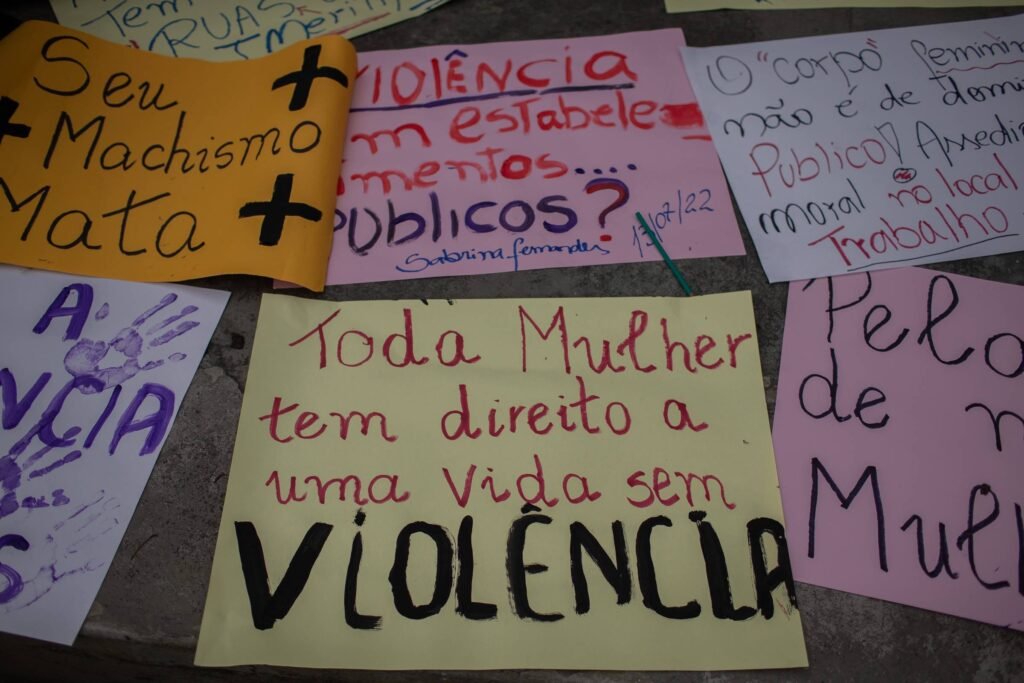 Tem
RUAS
Seu
Machismo
Mata
VIOLÊNCIA
em estabele
imentos....
PÚBLICOS?
Sabrina fernandes 13/07/22
O "corpo" feminin
não é de domi
Público! Assedi
moral no local
Trabalho
A
NCIA
S
Toda Mulher
tem direito a
uma vida sem
VIOLÊNCIA
Pelo
de
Mulh